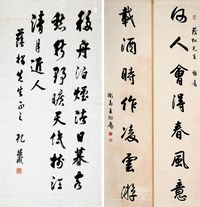 移舟泊煙渚日暮客
愁新野曠天低樹江
清月近人
先生正之 孔
何人會得春風意
先生
載酒時作凌雲游